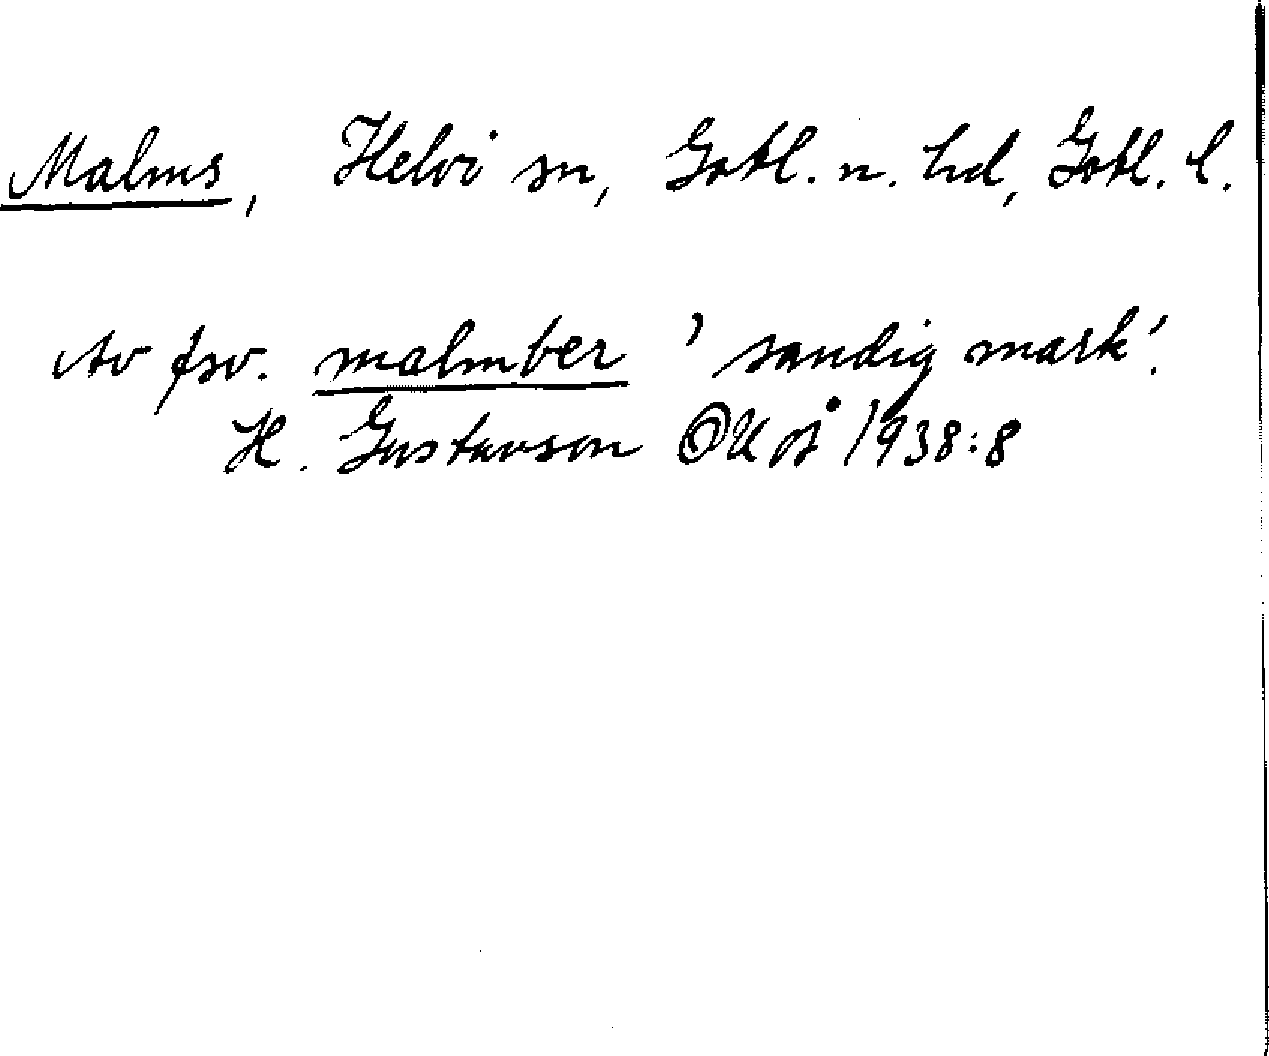 Malms, Helvi sn, Gotl. n. hd, Gotl. l.
Av fsv. malmber 'sandig mark'.
H. Gustavson OUoÅ 1938:8